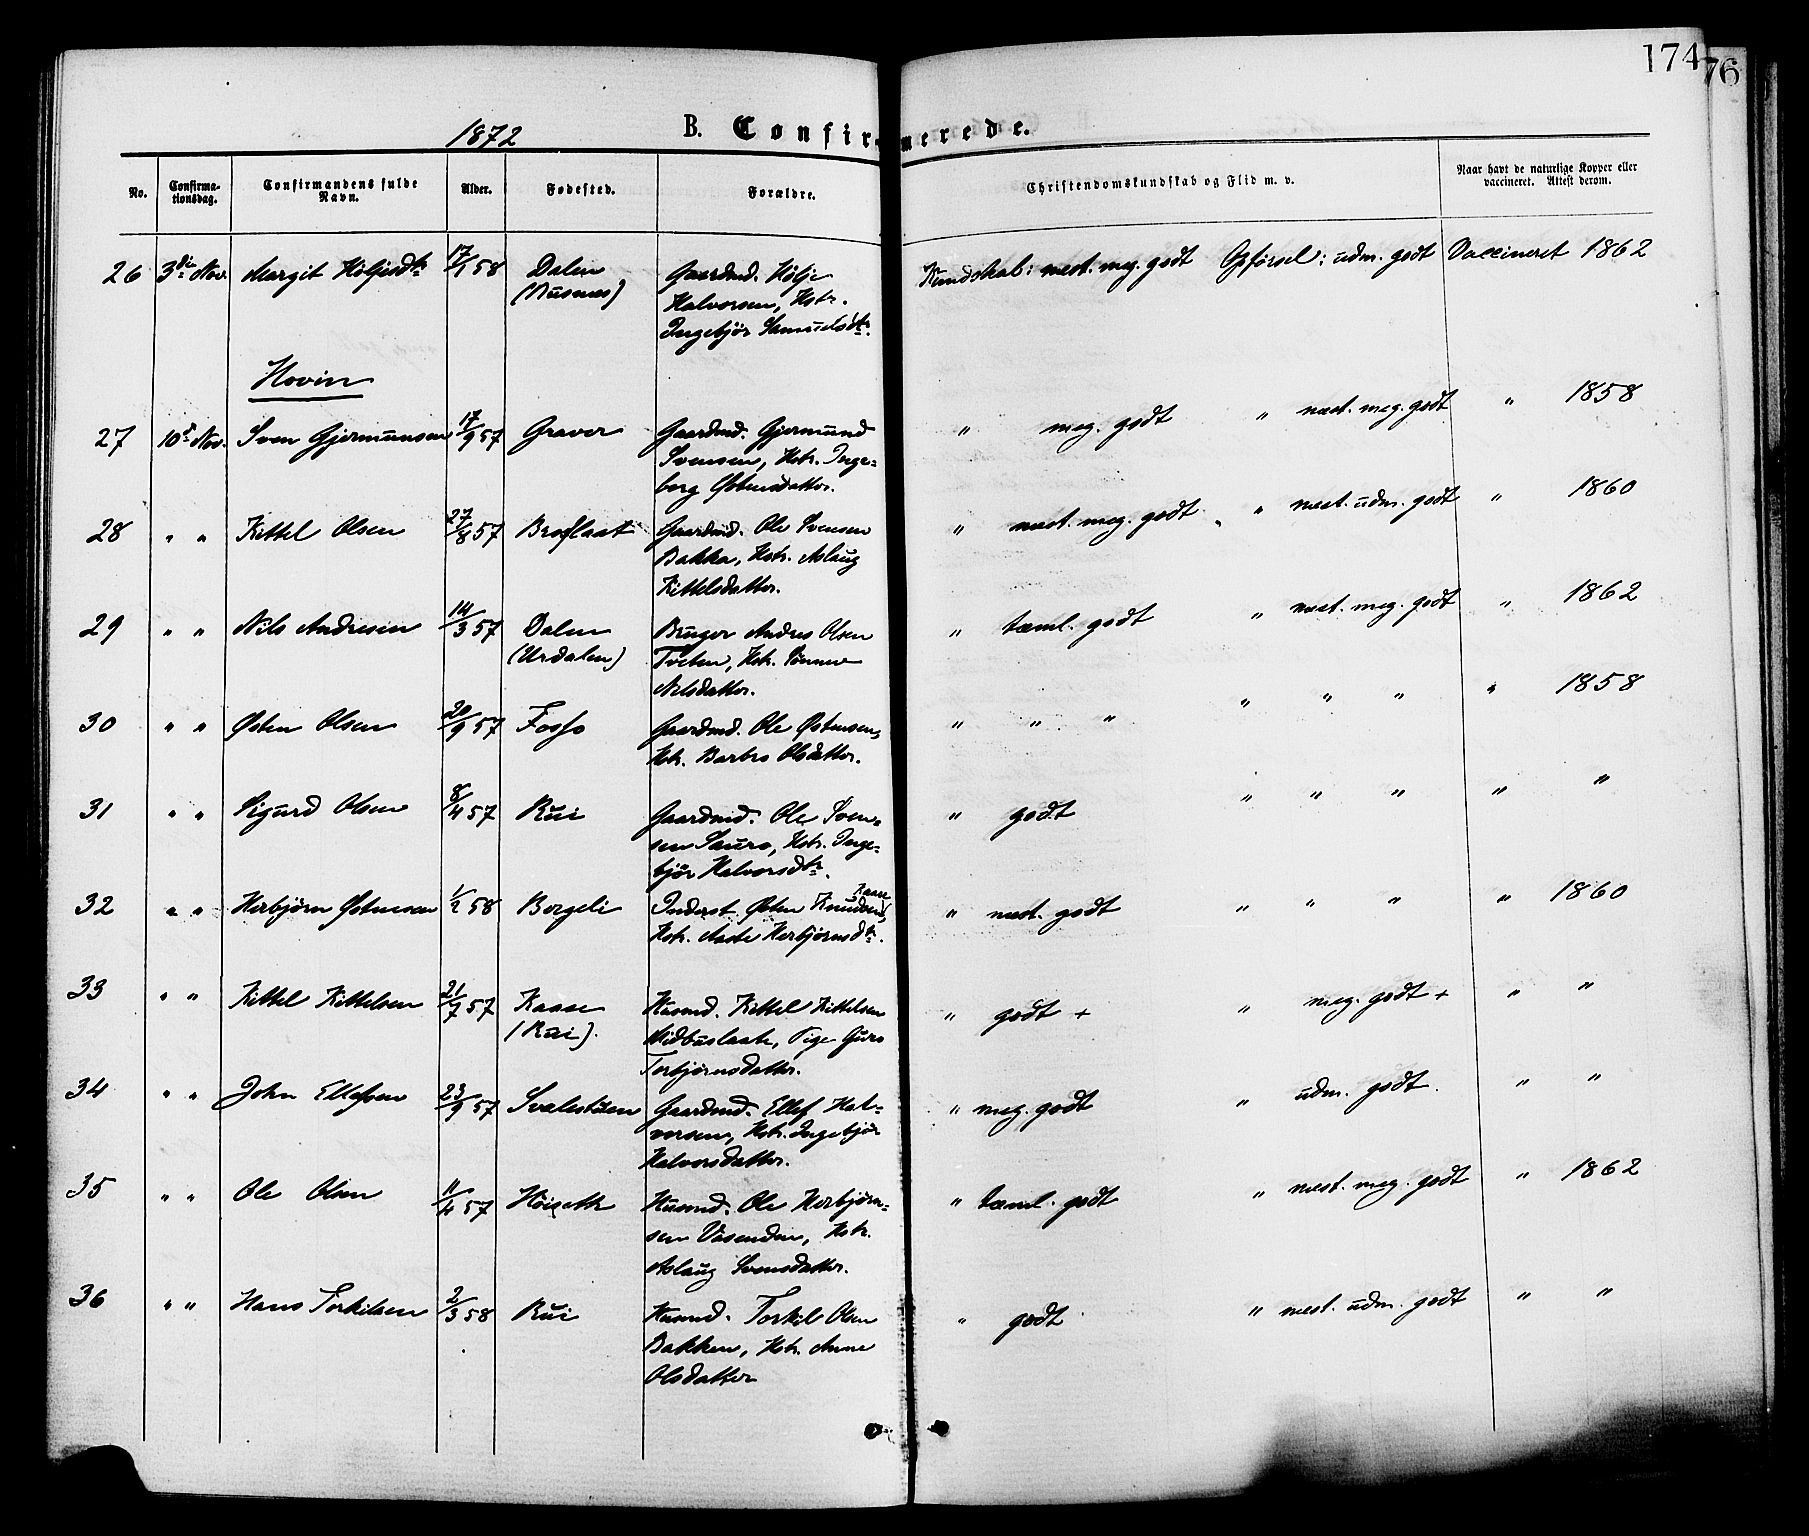 174
76
1872
B. Confirmerede.
No.
Confirma-
tionsdag.
Confirmandens fulde
Navn.
Alder.
Fødested.
Forældre.
Christendomskundskab og Flid m. v.
Naar havt de naturlige Kopper eller
vaccineret. Attest derom.
26 3die Nov. Margit Høljesdtr 17/1 58 Dalen Gaardmd. Hølje Kundskab: mest. meg. godt Opførsel: udm. godt Vaccineret 1862
(Rusnæs) Halvorsen, Hstr.
Ingebjør Samuelsdtr.
Hovin
27 10de Nov. Sven Gjermunsen 17/9 57 Graver Gaardmd. Gjermund " meg. godt " mest. meg. godt " 1858
Svensen, Hstr. Inge-
borg Østensdatter.
28 " " Kittel Olsen 27/8 57 Brøflaat Gaardmd. Ole Svensen " mest. meg. godt " mest. udm. godt " 1860
Bakka, Hstr. Aslaug
Kittelsdatter.
29 " " Nils Andresen 14/3 57 Dalen Bruger Andres Olsen " taml. godt " mest. meg. godt " 1862
(Urdalen) Tveten, Hstr. Sønneve
Nilsdatter.
30 " " Østen Olsen 20/9 57 Fosso Gaardmd. Ole Østensen, " " " " " " " 1858
Hstr. Barbro Olsdatter.
31 " " Sigurd Olsen 8/4 57 Rui Gaardmd. Ole Sven- " godt " " " " "
sen Sauro, Hstr. Inge-
bjør Halvorsdtr.
32 " " Herbjørn Østensen 1/2 58 Børgeli Inderst Østen Knudsen Kaase, " mest. godt " " " " 1860
Hstr. Aaste Herbjørnsdtr.
33 " " Kittel Kittelsen 21/7 57 Kaase Husmd. Kittel Kittelsen " godt + " meg. godt + " "
(Rui). Midbuslaate, Pige Guro
Torbjørnsdatter.
34 " " John Ellefsen 23/9 57 Svalestuen Gaardmd. Ellef Hal- " meg. godt " udm. godt. " "
vorsen, Hstr. Ingebjør
Halvorsdatter.
35 " " Ole Olsen 11/4 57 Høiseth Husmd. Ole Herbjørn- " taml. godt " mest. meg. godt " 1862
sen Vasenden, Hstr.
Aslaug Svensdatter.
36 " " Hans Torkilsen 2/3 58 Rui Husmd. Torkil Olsen " godt " mest. udm. godt " "
Bakken, Hstr. Anne
Olsdatter